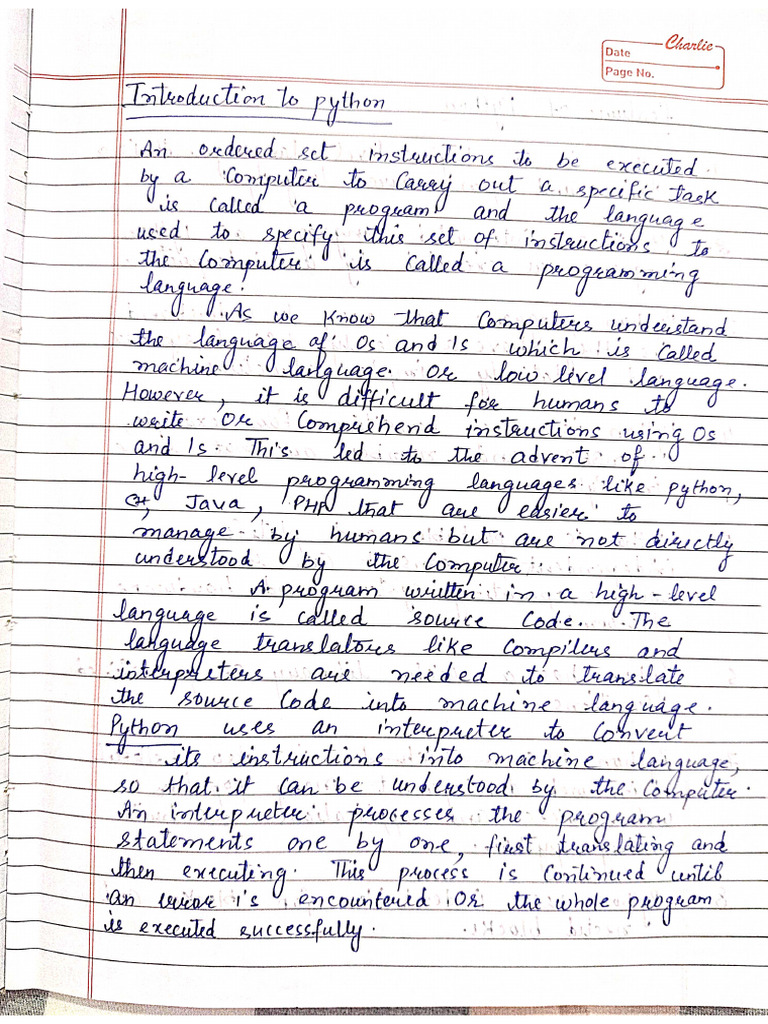 Charlie
Date
Page No.
Introduction to python
An ordered set instructions to be executed
by a Computer to Carry out a specific task
is called a program and the language
used to specify this set of instructions to
the Computer is called a programming
language.
As we know that Computers understand
the language of 0s and 1s which is called
machine language or low level language.
However, it is difficult for humans to
write or Comprehend instructions using 0s
and 1s. This led to the advent of
high-level programming languages like python,
C++, Java, PHP that are easier to
manage by humans but are not directly
understood by the Computer.
A program written in a high-level
language is called source Code. The
language translators like Compilers and
interpreters are needed to translate
the source Code into machine language.
Python uses an interpreter to Convert
its instructions into machine language,
so that it can be understood by the Computer.
An interpreter processes the program
statements one by one, first translating and
then executing. This process is Continued until
an error is encountered or the whole program
is executed successfully.